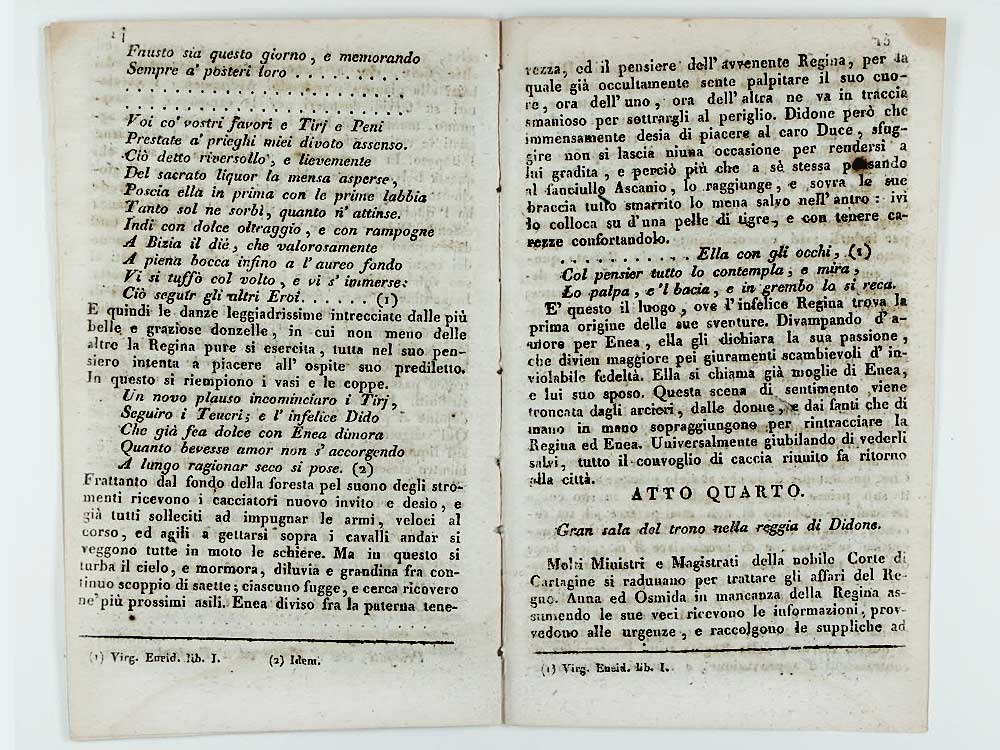 Fausto sia questo giorno, e memorando
Sempre a' posteri loro . . . . . . . . .
. . . . . . . . . . . . . . . . . . . . . . .
. . . . . . . . . . . . . . . . . . . . . . .
Voi co' vostri favori e Tirj e Peni
Prestate a' prieghi miei divoto assenso.
Ciò detto riversollo, e lievemente
Del sacrato liquor la mensa asperse,
Poscia ella in prima con le prime labbia
Tanto sol ne sorbì, quanto n' attinse.
Indi con dolce oltraggio, e con rampogne
A Bizia il diè, che valorosamente
A piena bocca infino a l' aureo fondo
Vi si tuffò col volto, e vi s' immerse:
Ciò seguir gli altri Eroi. . . . . . (1)
E quindi le danze leggiadrissime intrecciate dalle più
belle e graziose donzelle, in cui non meno delle
altre la Regina pure si esercita, tutta nel suo pen-
siero intenta a piacere all' ospite suo prediletto.
In questo si riempiono i vasi e le coppe.
Un novo plauso incominciaro i Tirj,
Seguiro i Teucri; e l' infelice Dido
Che già fea dolce con Enea dimora
Quanto bevesse amor non s' accorgendo
A lungo ragionar seco si pose. (2)
Frattanto dal fondo della foresta pel suono degli stro-
menti ricevono i cacciatori nuovo invito e desio, e
già tutti solleciti ad impugnar le armi, veloci al
corso, ed agili a gettarsi sopra i cavalli andar si
veggono tutte in moto le schiere. Ma in questo si
turba il cielo, e mormora, diluvia e grandina fra con-
tinuo scoppio di saette; ciascuno fugge, e cerca ricovero
ne' più prossimi asili. Enea diviso fra la paterna tene-
(1) Virg. Eneid. lib. I. (2) Idem.
15
rezza, ed il pensiere dell' avvenente Regina, per la
quale già occultamente sente palpitare il suo cuo-
re, ora dell' uno, ora dell' altra ne va in traccia
smanioso per sottrargli al periglio. Didone però che
immensamente desia di piacere al caro Duce, sfug-
gire non si lascia niuna occasione per rendersi a
lui gradita, e perciò più che a sè stessa pensando
al fanciullo Ascanio, lo raggiunge, e sovra le sue
braccia tutto smarrito lo mena salvo nell' antro: ivi
lo colloca su d' una pelle di tigre, e con tenere ca-
rezze confortandolo.
. . . . . . . . . . . Ella con gli occhi, (1)
Col pensier tutto lo contempla, e mira,
Lo palpa, e 'l bacia, e in grembo lo si reca.
E' questo il luogo, ove l' infelice Regina trova la
prima origine delle sue sventure. Divampando d' a-
more per Enea, ella gli dichiara la sua passione,
che divien maggiore pei giuramenti scambievoli d' in-
violabile fedeltà. Ella si chiama già moglie di Enea,
e lui suo sposo. Questa scena di sentimento viene
troncata dagli arcieri, dalle donne, e dai fanti che di
mano in mano sopraggiungono per rintracciare la
Regina ed Enea. Universalmente giubilando di vederli
salvi, tutto il convoglio di caccia riunito fa ritorno
alla città.
ATTO QUARTO.
Gran sala del trono nella reggia di Didone.
Molti Ministri e Magistrati della nobile Corte di
Cartagine si radunano per trattare gli affari del Re-
gno. Anna ed Osmida in mancanza della Regina as-
sumendo le sue veci ricevono le informazioni, prov-
vedono alle urgenze, e raccolgono le suppliche ad
(1) Virg. Eneid. lib. I.